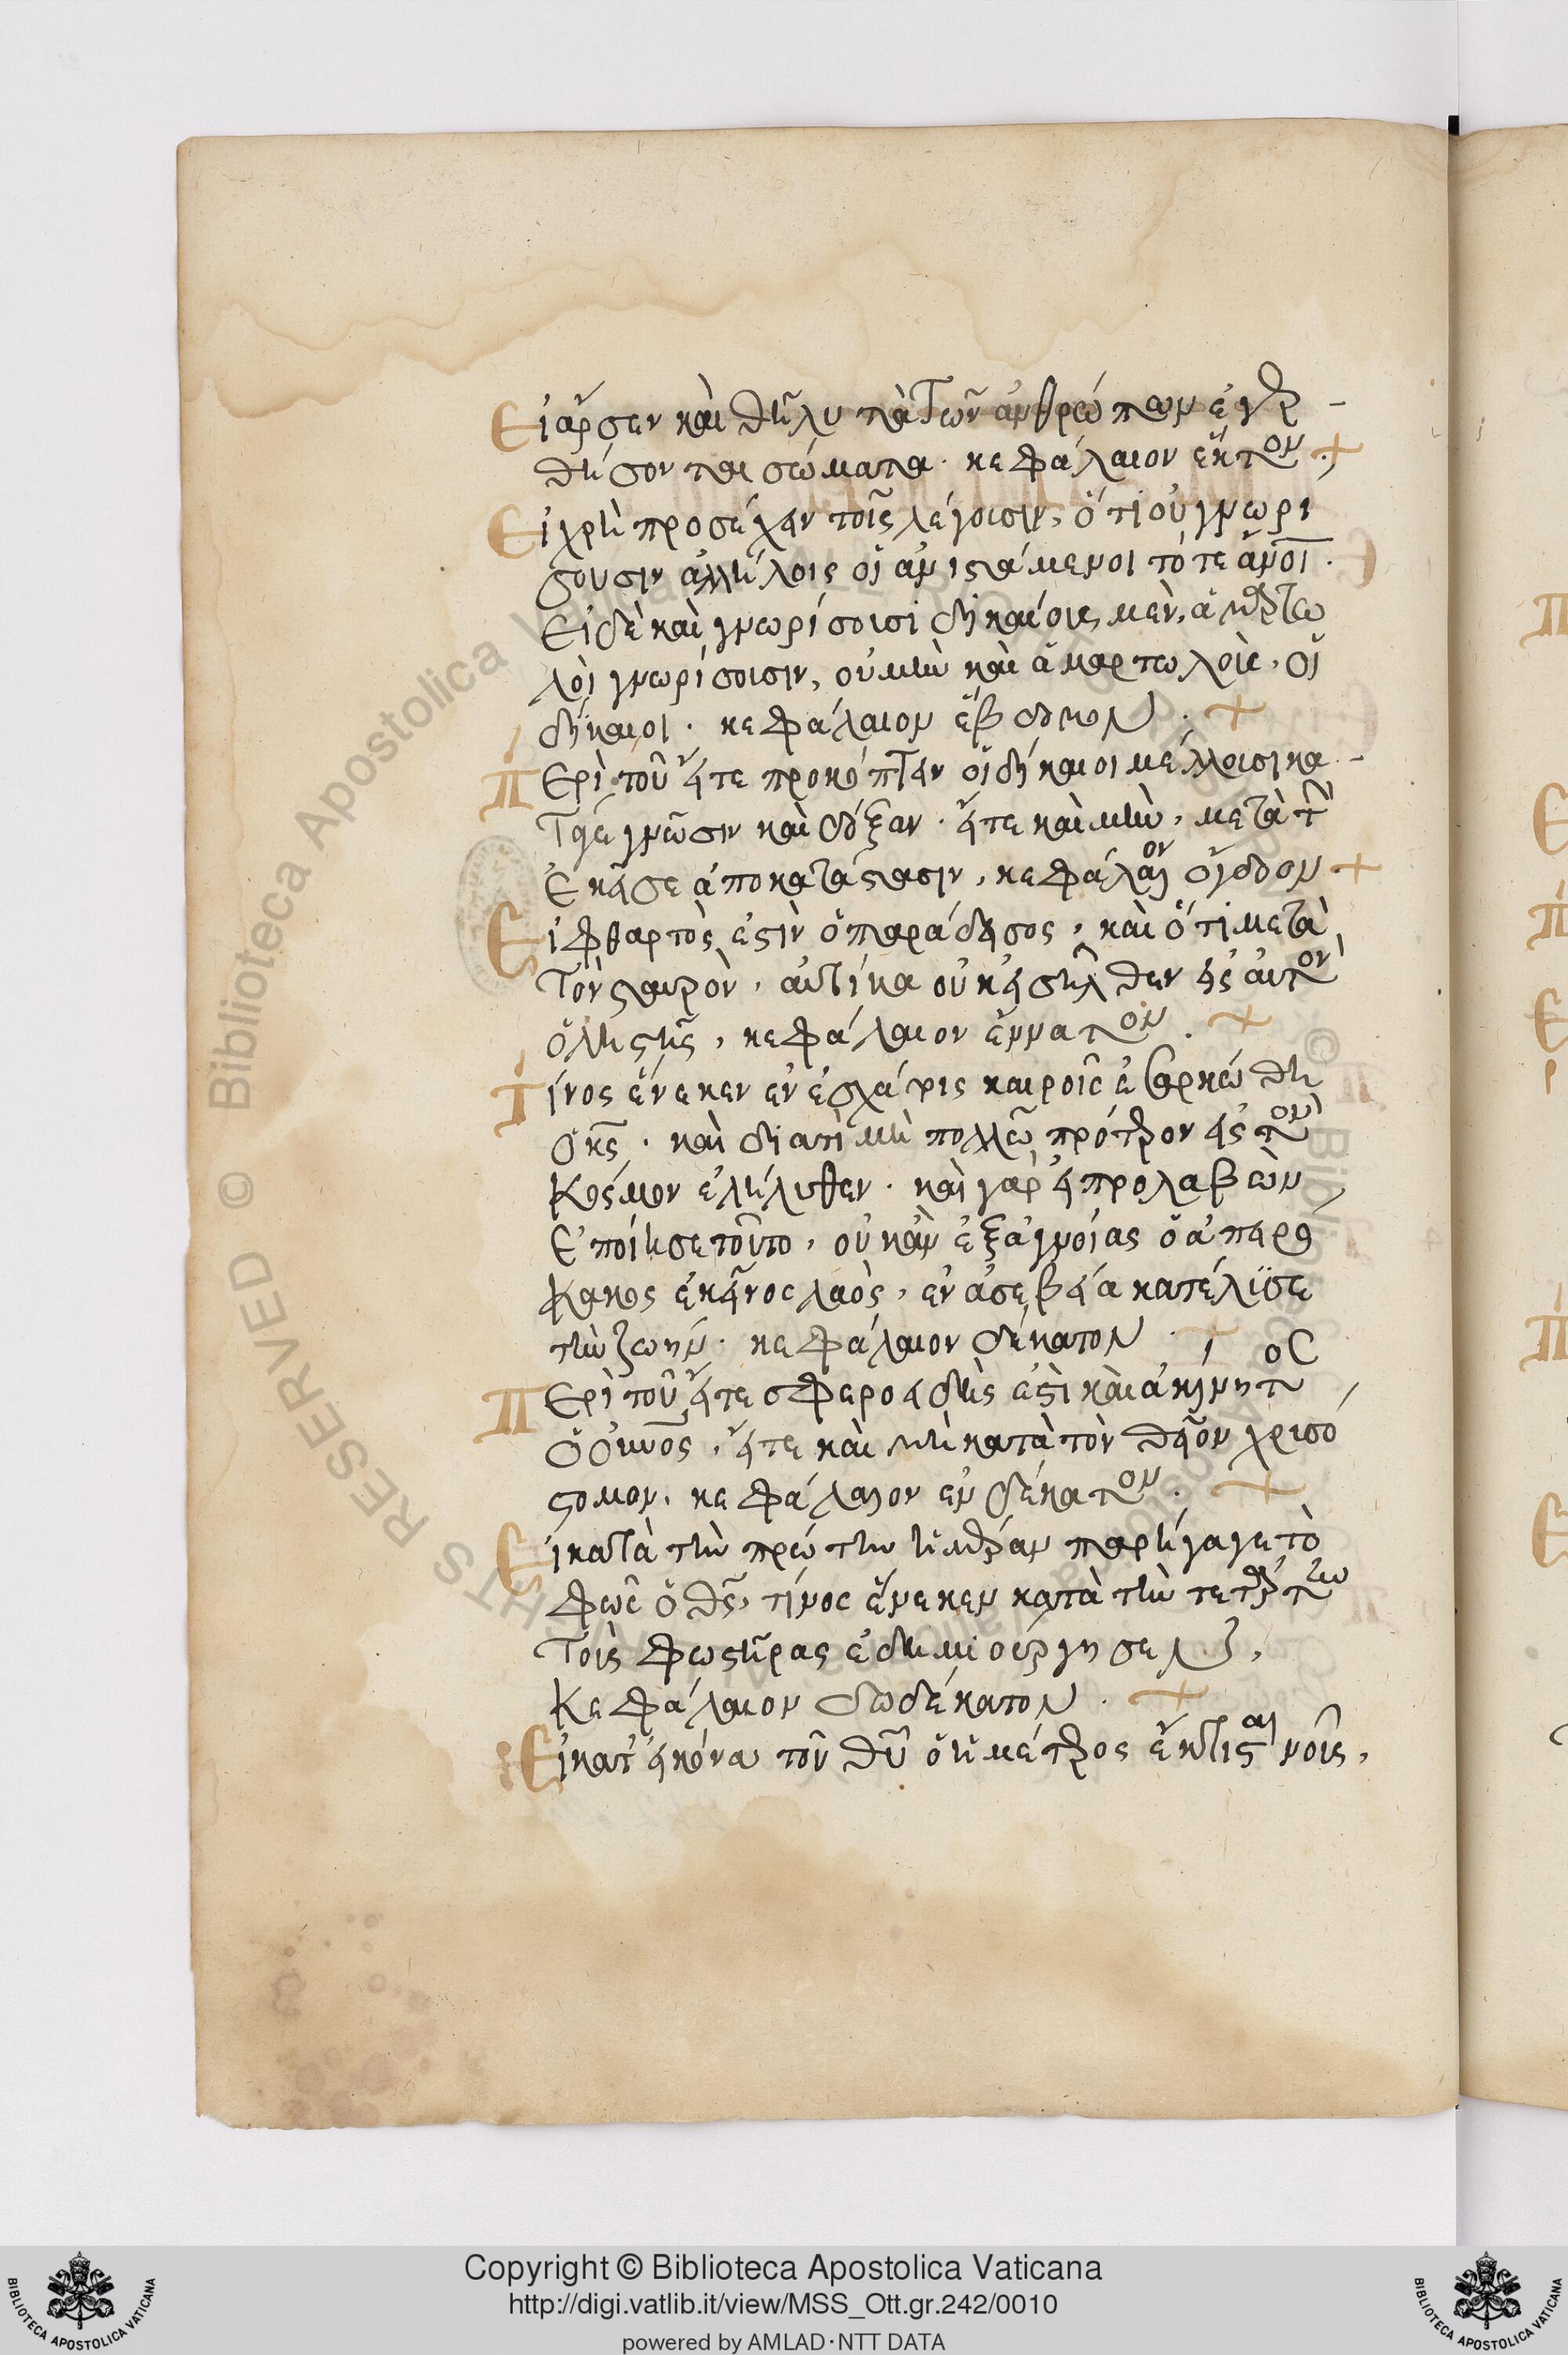 Εἰ ἄρσεν καὶ θῆλυ τὰ τῶν ἀνθρώπων ἐγερ
θήσονται σώματα. κεφάλαιον ἕκτον.
Εἰ χρὴ προσέχειν τοῖς λέγουσιν, ὅτι οὐ γνωρι
σουσιν ἀλλήλοις οἱ ἀνιστάμενοι τότε ἄνοι.
Εἰ δὲ καὶ γνωρίσουσι δικαίους μὲν, ἁμαρτω
λοὶ γνωρίσουσιν, οὐ μὴν καὶ ἁμαρτωλοὺς, οἱ
δίκαιοι. κεφάλαιον ἕβδομον.
Περὶ τοῦ εἴτε προκόπτειν οἱ δίκαιοι μέλλουσι κα
τά γε γνῶσιν καὶ δόξαν. εἴτε καὶ μὴ, μετὰ τὴν
ἐκεῖσε ἀποκατάστασιν, κεφάλαιον ὄγδοον
Εἰ φθαρτὸς ἐστὶν ὁ παράδεισος, καὶ ὅτι μετὰ
τὸν σταυρὸν, αὐτίκα οὐκ εἰσῆλθεν εἰς αὐτὸν
ὁ ληστὴς, κεφάλαιον ἔννατον.
Τίνος ἕνεκεν ἐν ἐσχάτοις καιροῖς ἐσαρκώθη
ὁ κς. καὶ διατί μὴ πολλῶ πρότερον εἰς τὸν
κόσμον ἐλήλυθεν. καὶ γὰρ εἰ προλαβὼν
ἐποίησε τοῦτο, οὐκ ἂν ἐξ ἀγνοίας ὁ ἀπειρό
κακος ἐκεῖνος λαὸς, ἐν ἀσεβεία κατέλυσε
τὴν ζωήν. κεφάλαιον δέκατον
Περὶ τοῦ εἴτε σφεροειδὴς ἐστὶ καὶ ἀκίνητος
ὁ οὐνος, εἴτε καὶ μὴ κατὰ τὸν θεῖον χρυσό
στομον. κεφάλαιον ενδέκατον.
Εἰ κατὰ τὴν πρώτην ἡμέραν παρήγαγε τὸ
φῶς ὁ θς, τίνος ἕνεκεν κατὰ τὴν τετάρτην
τοὺς φωστῆρας ἐδημιούργησε,
κεφάλαιον δωδέκατον.
Εἰ κατ' εἰκόνα τοῦ θυ ὁ ἡμέτερος ἔκτισται νοῦς,
Copyright © Biblioteca Apostolica Vaticana
http://digi.vatlib.it/view/MSS_Ott.gr.242/0010
powered by AMLAD·NTT DATA